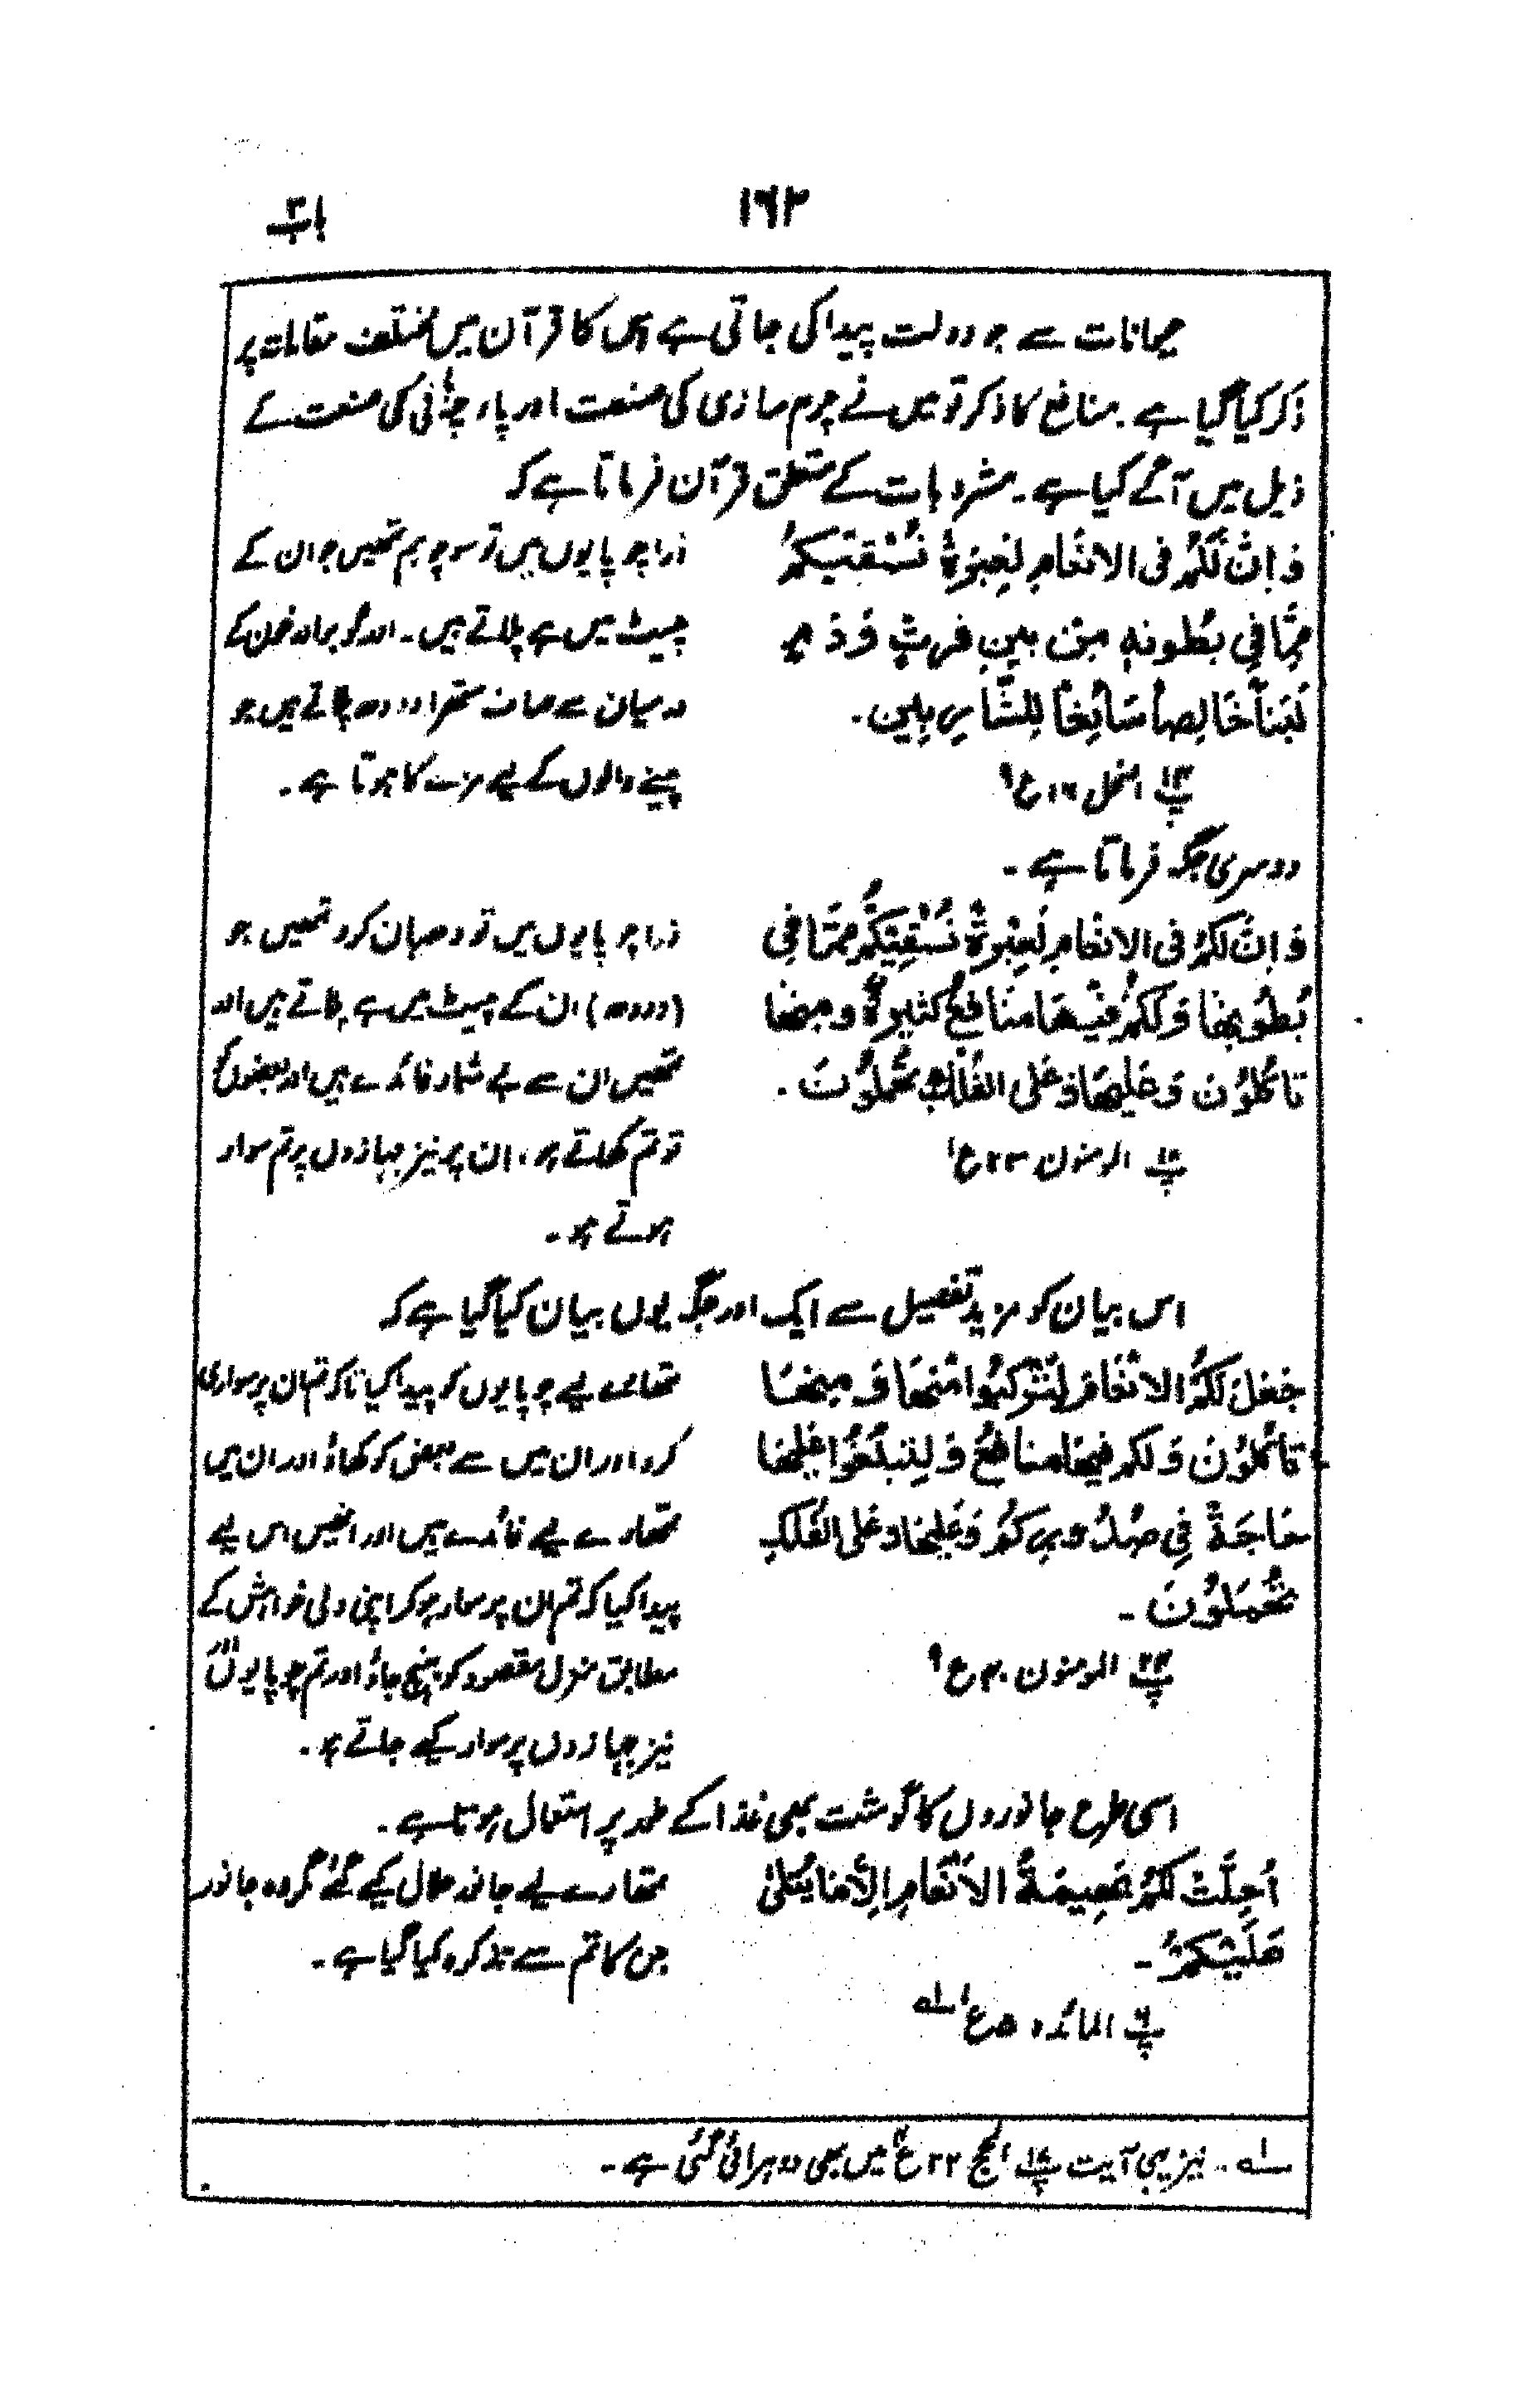 ۱۶۲
باب ۳
حیوانات سے جو دولت پیدا کی جاتی ہے اس کا قرآن میں مختلف مقامات پر
ذکر کیا گیا ہے۔ منافع کا ذکر تو میں نے چرم سازی کی صنعت اور پارچہ بافی کی صنعت کے
ذیل میں آگے کیا ہے۔ مشروبات کے متعلق قرآن فرماتا ہے کہ
وَ اِنَّ لَكُمْ فِی الانْعَامِ لَعِبْرَةً نُسْقِيْكُمْ
مِمَّا فِي بُطُونِهٖ مِنْ بَيْنِ فَرْثٍ وَّدَمٍ
لَبَنًا خَالِصاً سَائِغاً لِلشَّارِبِين۔
پ۱۴ النحل ۱۶ ع۹
ذرا چوپایوں میں تو سوچو ہم تمہیں جو ان کے
پیٹ میں ہے پلاتے ہیں۔ اور گوبر اور خون کے
درمیان سے صاف ستھرا دودھ پلاتے ہیں جو
پینے والوں کے لیے مزے کا ہوتا ہے۔
دوسری جگہ فرماتا ہے۔
وَ اِنَّ لَكُمْ فِی الانْعَامِ لَعِبْرةً نُسْقِيْكُمْ مِمَّا فِي
بُطُوْنِهَا وَ لَكُمْ فِيْهَا مَنَافِعُ كَثِيرةٌ و مِنْهَا
تَاكُلُوْنَ وَ عَلَيهَا وَ عَلَى الفُلْكِ تُحْمَلُوْنَ۔
پ۱۸ المومنون ۲۳ ع۱
ذرا چوپایوں میں تو دھیان کرو تمھیں جو
(دودھ) ان کے پیٹ میں ہے پلاتے ہیں اور
تمھیں ان سے بے شمار فائدے ہیں اور بعضوں کو
تو تم کھاتے ہو، ان پر نیز جہازوں پر تم سوار
ہوتے ہو۔
اس بیان کو مزید تفصیل سے ایک اور جگہ یوں بیان کیا گیا ہے کہ
جَعَلَ لَكُمُ الانْعَامَ لِتَرْكَبُوا مِنْهَا وَ مِنْهَا
تَاكُلُوْنَ وَ لَكُمْ فِيهَا مَنَافِعُ وَ لِتَبْلُغُوْا عَلَيْهَا
حَاجَةً فِي صُدُورِكُمْ وَ عَلَيهَا وَ عَلَى الفُلْكِ
تُحْمَلُوْنَ۔
پ۲۴ المومنون ۴۰ ع۹
تمھارے لیے چوپایوں کو پیدا کیا تاکہ تم ان پر سواری
کرو اور ان میں سے بعض کو کھاؤ اور ان میں
تمھارے لیے فائدے ہیں اور انھیں اس لیے
پیدا کیا کہ تم ان پر سوار ہو کر اپنی دلی خواہش کے
مطابق منزل مقصود کو پہنچ جاؤ اور تم چوپایوں اور
نیز جہازوں پر سوار کیے جاتے ہو۔
اسی طرح جانوروں کا گوشت بھی غذا کے طور پر استعمال ہوتا ہے۔
اُحِلَّتْ لَكُمْ بَهِيمَةُ الاَنْعَامِ اِلاَّ مَا يُتْلىٰ
عَلَيْكُمْ۔
پ۶ المائدہ ۵ ع۱ ؎۱
تمھارے لیے جانور حلال کیے گئے مگر وہ جانور
جن کا تم سے تذکرہ کیا گیا ہے۔
؎۱۔ نیز یہی آیت پ۱۷ الحج ۲۲ ع۴ میں بھی دوہرائی گئی ہے۔